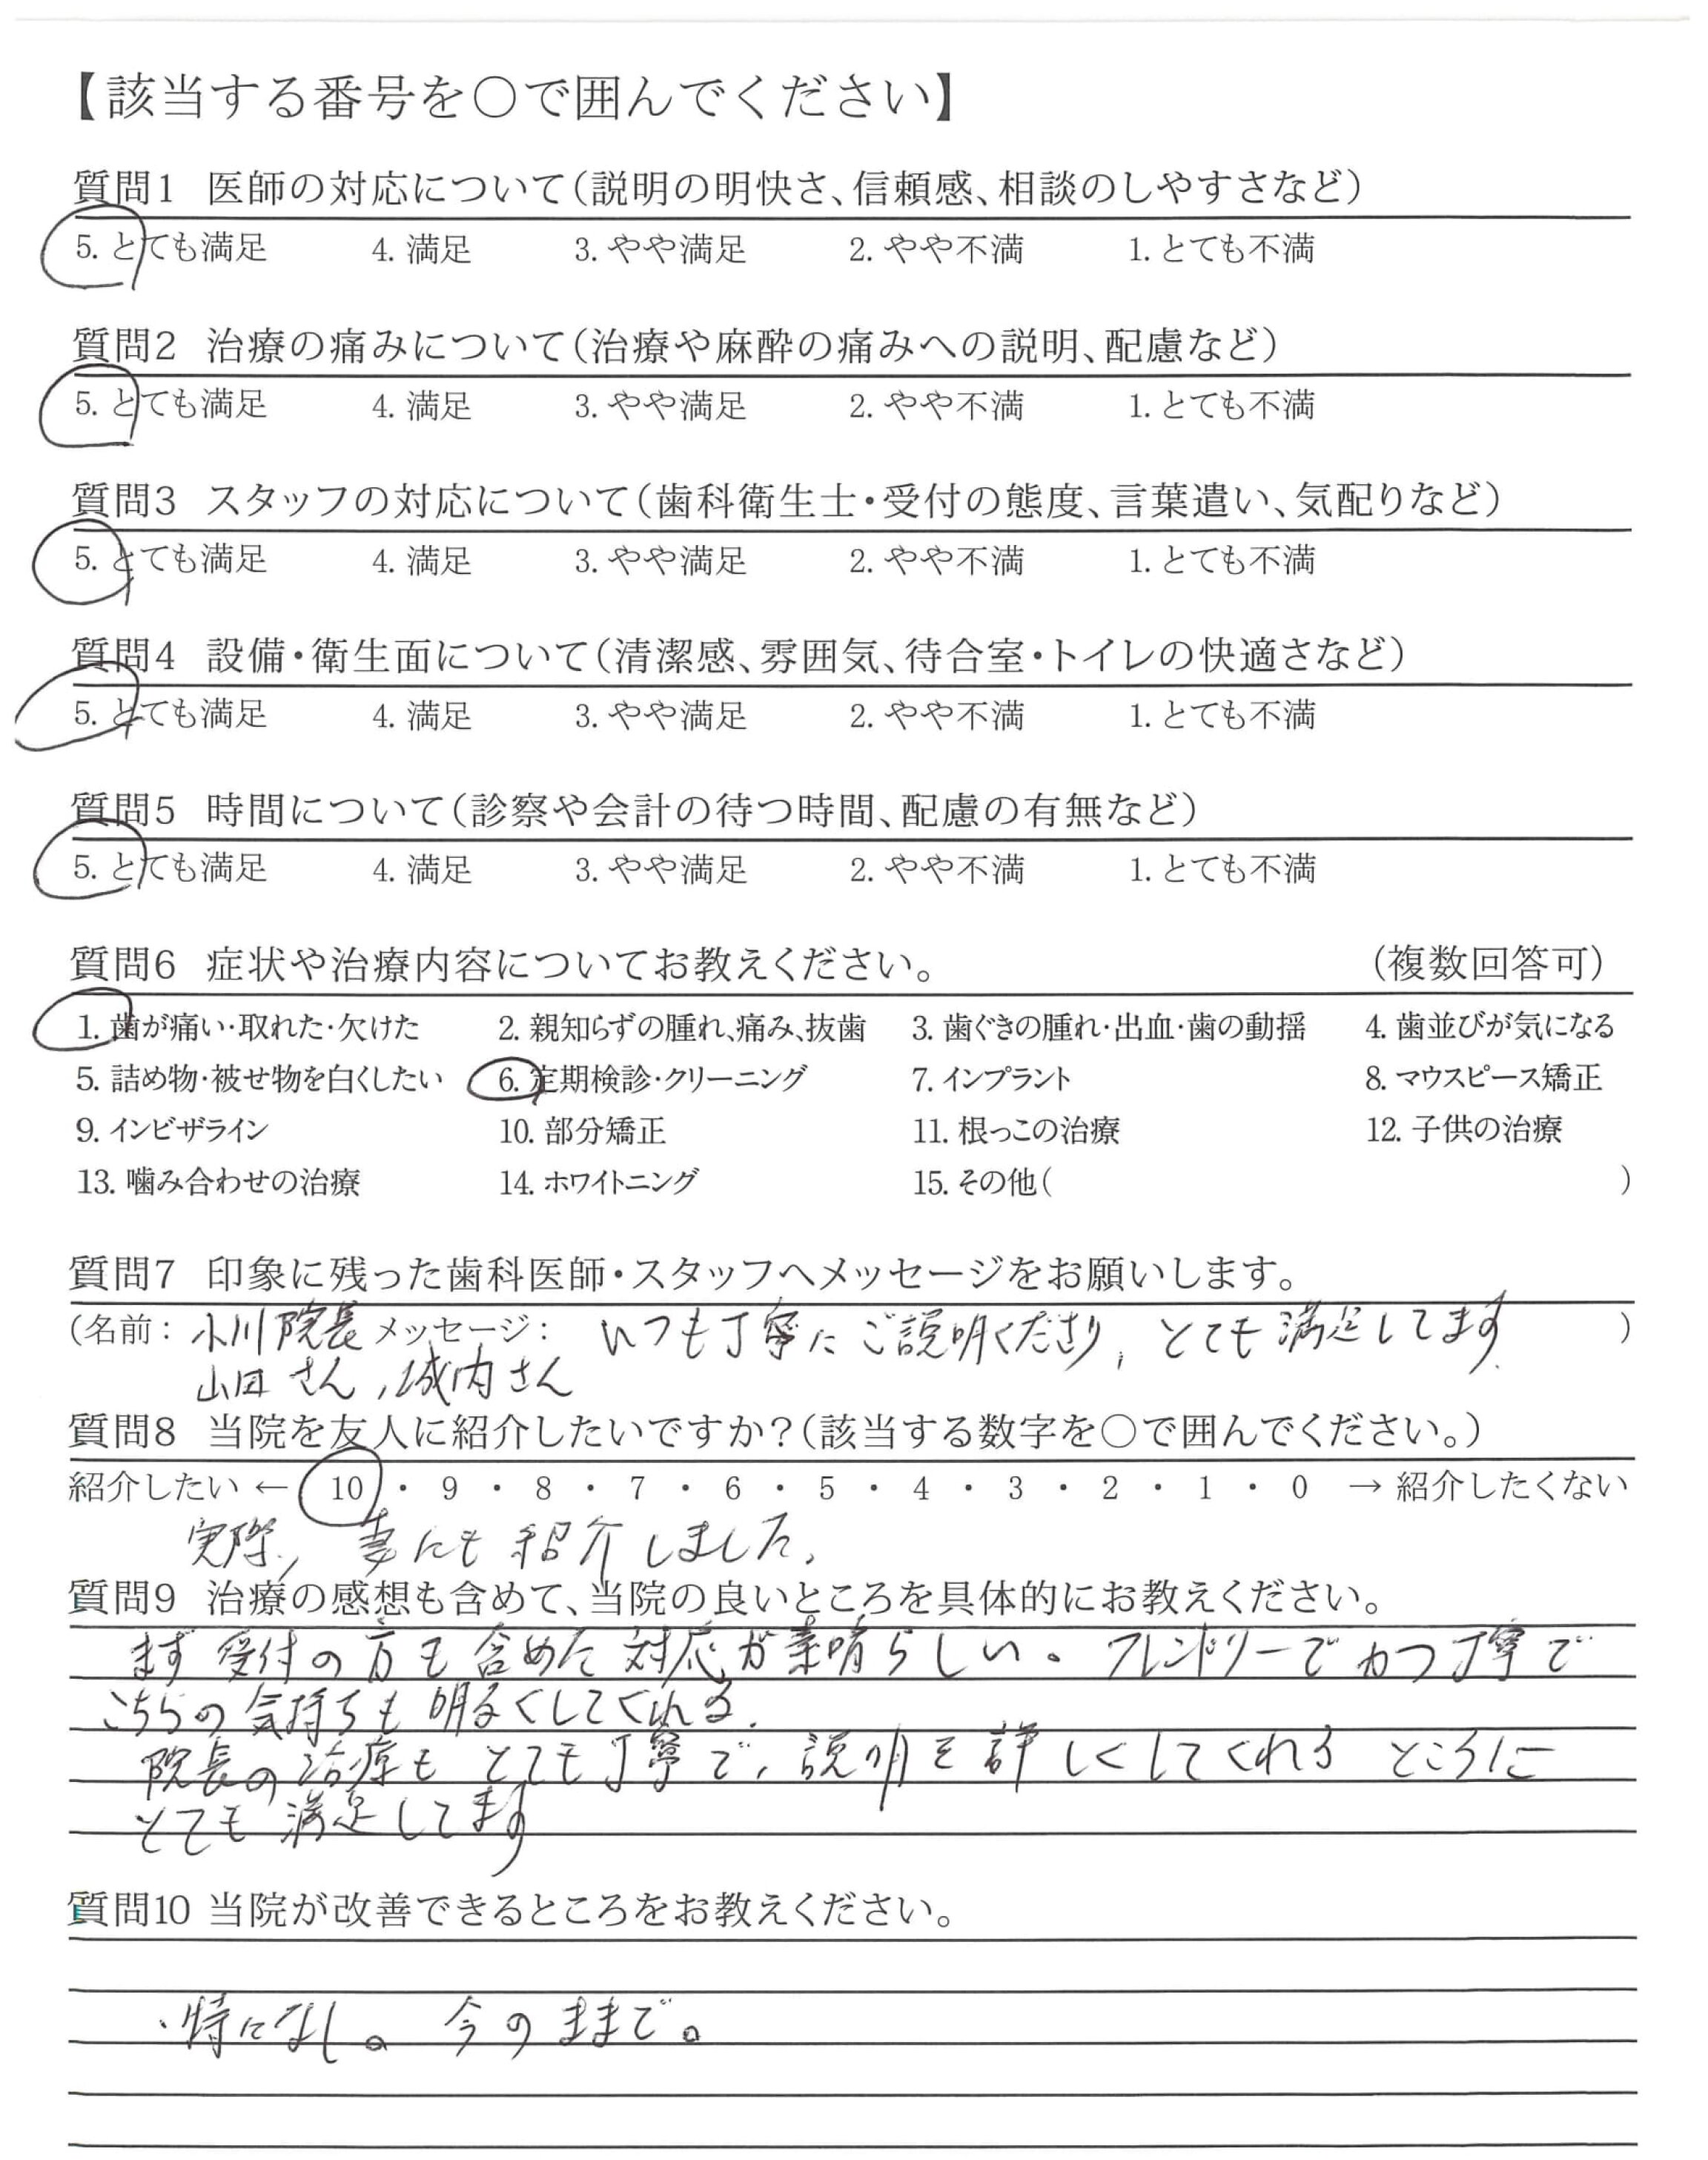 【該当する番号を○で囲んでください】
質問1 医師の対応について(説明の明快さ、信頼感、相談のしやすさなど)
5. とても満足 4. 満足 3. やや満足 2. やや不満 1. とても不満
質問2 治療の痛みについて(治療や麻酔の痛みへの説明、配慮など)
5. とても満足 4. 満足 3. やや満足 2. やや不満 1. とても不満
質問3 スタッフの対応について(歯科衛生士・受付の態度、言葉遣い、気配りなど)
5. とても満足 4. 満足 3. やや満足 2. やや不満 1. とても不満
質問4 設備・衛生面について(清潔感、雰囲気、待合室・トイレの快適さなど)
5. とても満足 4. 満足 3. やや満足 2. やや不満 1. とても不満
質問5 時間について(診察や会計の待つ時間、配慮の有無など)
5. とても満足 4. 満足 3. やや満足 2. やや不満 1. とても不満
質問6 症状や治療内容についてお教えください。 (複数回答可)
1. 歯が痛い・取れた・欠けた 2. 親知らずの腫れ、痛み、抜歯 3. 歯ぐきの腫れ・出血・歯の動揺 4. 歯並びが気になる
5. 詰め物・被せ物を白くしたい 6. 定期検診・クリーニング 7. インプラント 8. マウスピース矯正
9. インビザライン 10. 部分矯正 11. 根っこの治療 12. 子供の治療
13. 噛み合わせの治療 14. ホワイトニング 15. その他( )
質問7 印象に残った歯科医師・スタッフへメッセージをお願いします。
(名前: 小川院長 メッセージ: いつも丁寧にご説明くださり、とても満足してます )
山田さん、城内さん
質問8 当院を友人に紹介したいですか?(該当する数字を○で囲んでください。)
紹介したい ← 10 ・ 9 ・ 8 ・ 7 ・ 6 ・ 5 ・ 4 ・ 3 ・ 2 ・ 1 ・ 0 → 紹介したくない
実際、妻にも紹介しました。
質問9 治療の感想も含めて、当院の良いところを具体的にお教えください。
まず受付の方も含めた対応が素晴らしい。フレンドリーでかつ丁寧で
こちらの気持ちも明るくしてくれる。
院長の治療もとても丁寧で、説明を詳しくしてくれるところに
とても満足してます
質問10 当院が改善できるところをお教えください。
・特になし。今のままで。